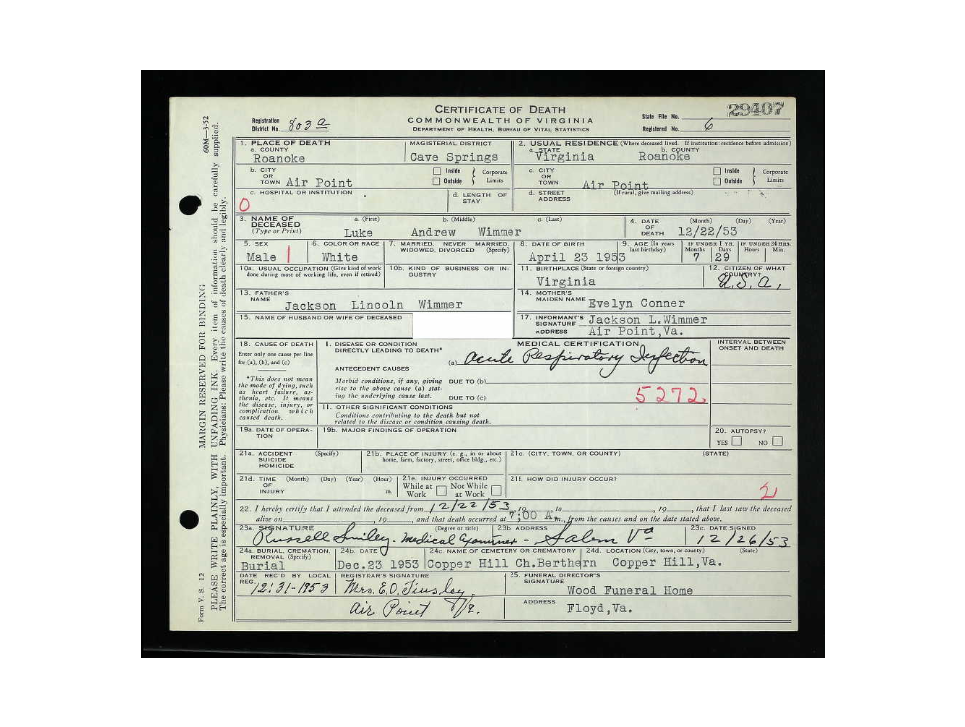 CERTIFICATE OF DEATH
COMMONWEALTH OF VIRGINIA
DEPARTMENT OF HEALTH, BUREAU OF VITAL STATISTICS
Registration District No. 803a
State File No. 29407
Registered No. 6
60M—3-52
1. PLACE OF DEATH
a. COUNTY
Roanoke
MAGISTERIAL DISTRICT
Cave Springs
2. USUAL RESIDENCE (Where deceased lived. If institution: residence before admission)
a. STATE
Virginia
b. COUNTY
Roanoke
b. CITY OR TOWN Air Point
Inside Outside Corporate Limits
c. CITY OR TOWN Air Point
Inside Outside Corporate Limits
c. HOSPITAL OR INSTITUTION
0
d. LENGTH OF STAY
d. STREET ADDRESS (If rural, give mailing address)
3. NAME OF DECEASED (Type or Print)
a. (First) b. (Middle) (Last)
Luke Andrew Wimmer
4. DATE OF DEATH (Month) (Day) (Year)
12/22/53
5. SEX
Male 1
6. COLOR OR RACE
White
7. MARRIED, NEVER MARRIED, WIDOWED, DIVORCED (Specify)
8. DATE OF BIRTH
April 23 1953
9. AGE (In years last birthday)
IF UNDER 1 YR. Months Days
7 29
IF UNDER 24 HRS. Hours Min.
10a. USUAL OCCUPATION (Give kind of work done during most of working life, even if retired)
10b. KIND OF BUSINESS OR INDUSTRY
11. BIRTHPLACE (State or foreign country)
Virginia
12. CITIZEN OF WHAT COUNTRY?
U.S.A.
13. FATHER'S NAME
Jackson Lincoln Wimmer
14. MOTHER'S MAIDEN NAME Evelyn Conner
15. NAME OF HUSBAND OR WIFE OF DECEASED
17. INFORMANT'S SIGNATURE Jackson L.Wimmer
ADDRESS Air Point,Va.
18. CAUSE OF DEATH
Enter only one cause per line for (a), (b), and (c)
*This does not mean the mode of dying, such as heart failure, asthenia, etc. It means the disease, injury, or complication which caused death.
MEDICAL CERTIFICATION
INTERVAL BETWEEN ONSET AND DEATH
I. DISEASE OR CONDITION DIRECTLY LEADING TO DEATH*
(a) Acute Respiratory Infection
ANTECEDENT CAUSES
Morbid conditions, if any, giving rise to the above cause (a) stating the underlying cause last.
DUE TO (b)
DUE TO (c)
5272
II. OTHER SIGNIFICANT CONDITIONS
Conditions contributing to the death but not related to the disease or condition causing death.
19a. DATE OF OPERATION
19b. MAJOR FINDINGS OF OPERATION
20. AUTOPSY?
YES NO
21a. ACCIDENT SUICIDE HOMICIDE (Specify)
21b. PLACE OF INJURY (e. g., in or about home, farm, factory, street, office bldg., etc.)
21c. (CITY, TOWN, OR COUNTY) (STATE)
21d. TIME OF INJURY (Month) (Day) (Year) (Hour) m.
21e. INJURY OCCURRED
While at Work Not While at Work
21f. HOW DID INJURY OCCUR?
2
22. I hereby certify that I attended the deceased from 12/22/53, 19 to , 19 , that I last saw the deceased
alive on , 19 , and that death occurred at 7:00 A m., from the causes and on the date stated above.
23a. SIGNATURE (Degree or title)
Russell Smiley - Medical Examiner -
23b. ADDRESS
Salem Va
23c. DATE SIGNED
12/26/53
24a. BURIAL, CREMATION, REMOVAL (Specify)
Burial
24b. DATE
Dec.23 1953
24c. NAME OF CEMETERY OR CREMATORY
Copper Hill Ch.Berthern
24d. LOCATION (City, town, or county) (State)
Copper Hill,Va.
DATE REC'D BY LOCAL REG.
12-31-1953
REGISTRAR'S SIGNATURE
Mrs. E.O. Tinsley
Air Point Va.
25. FUNERAL DIRECTOR'S SIGNATURE
Wood Funeral Home
ADDRESS
Floyd,Va.
Form V. S. 12
MARGIN RESERVED FOR BINDING
PLEASE WRITE PLAINLY, WITH UNFADING INK. Every item of information should be carefully supplied.
The correct age is especially important. Physicians: Please write the causes of death clearly and legibly.